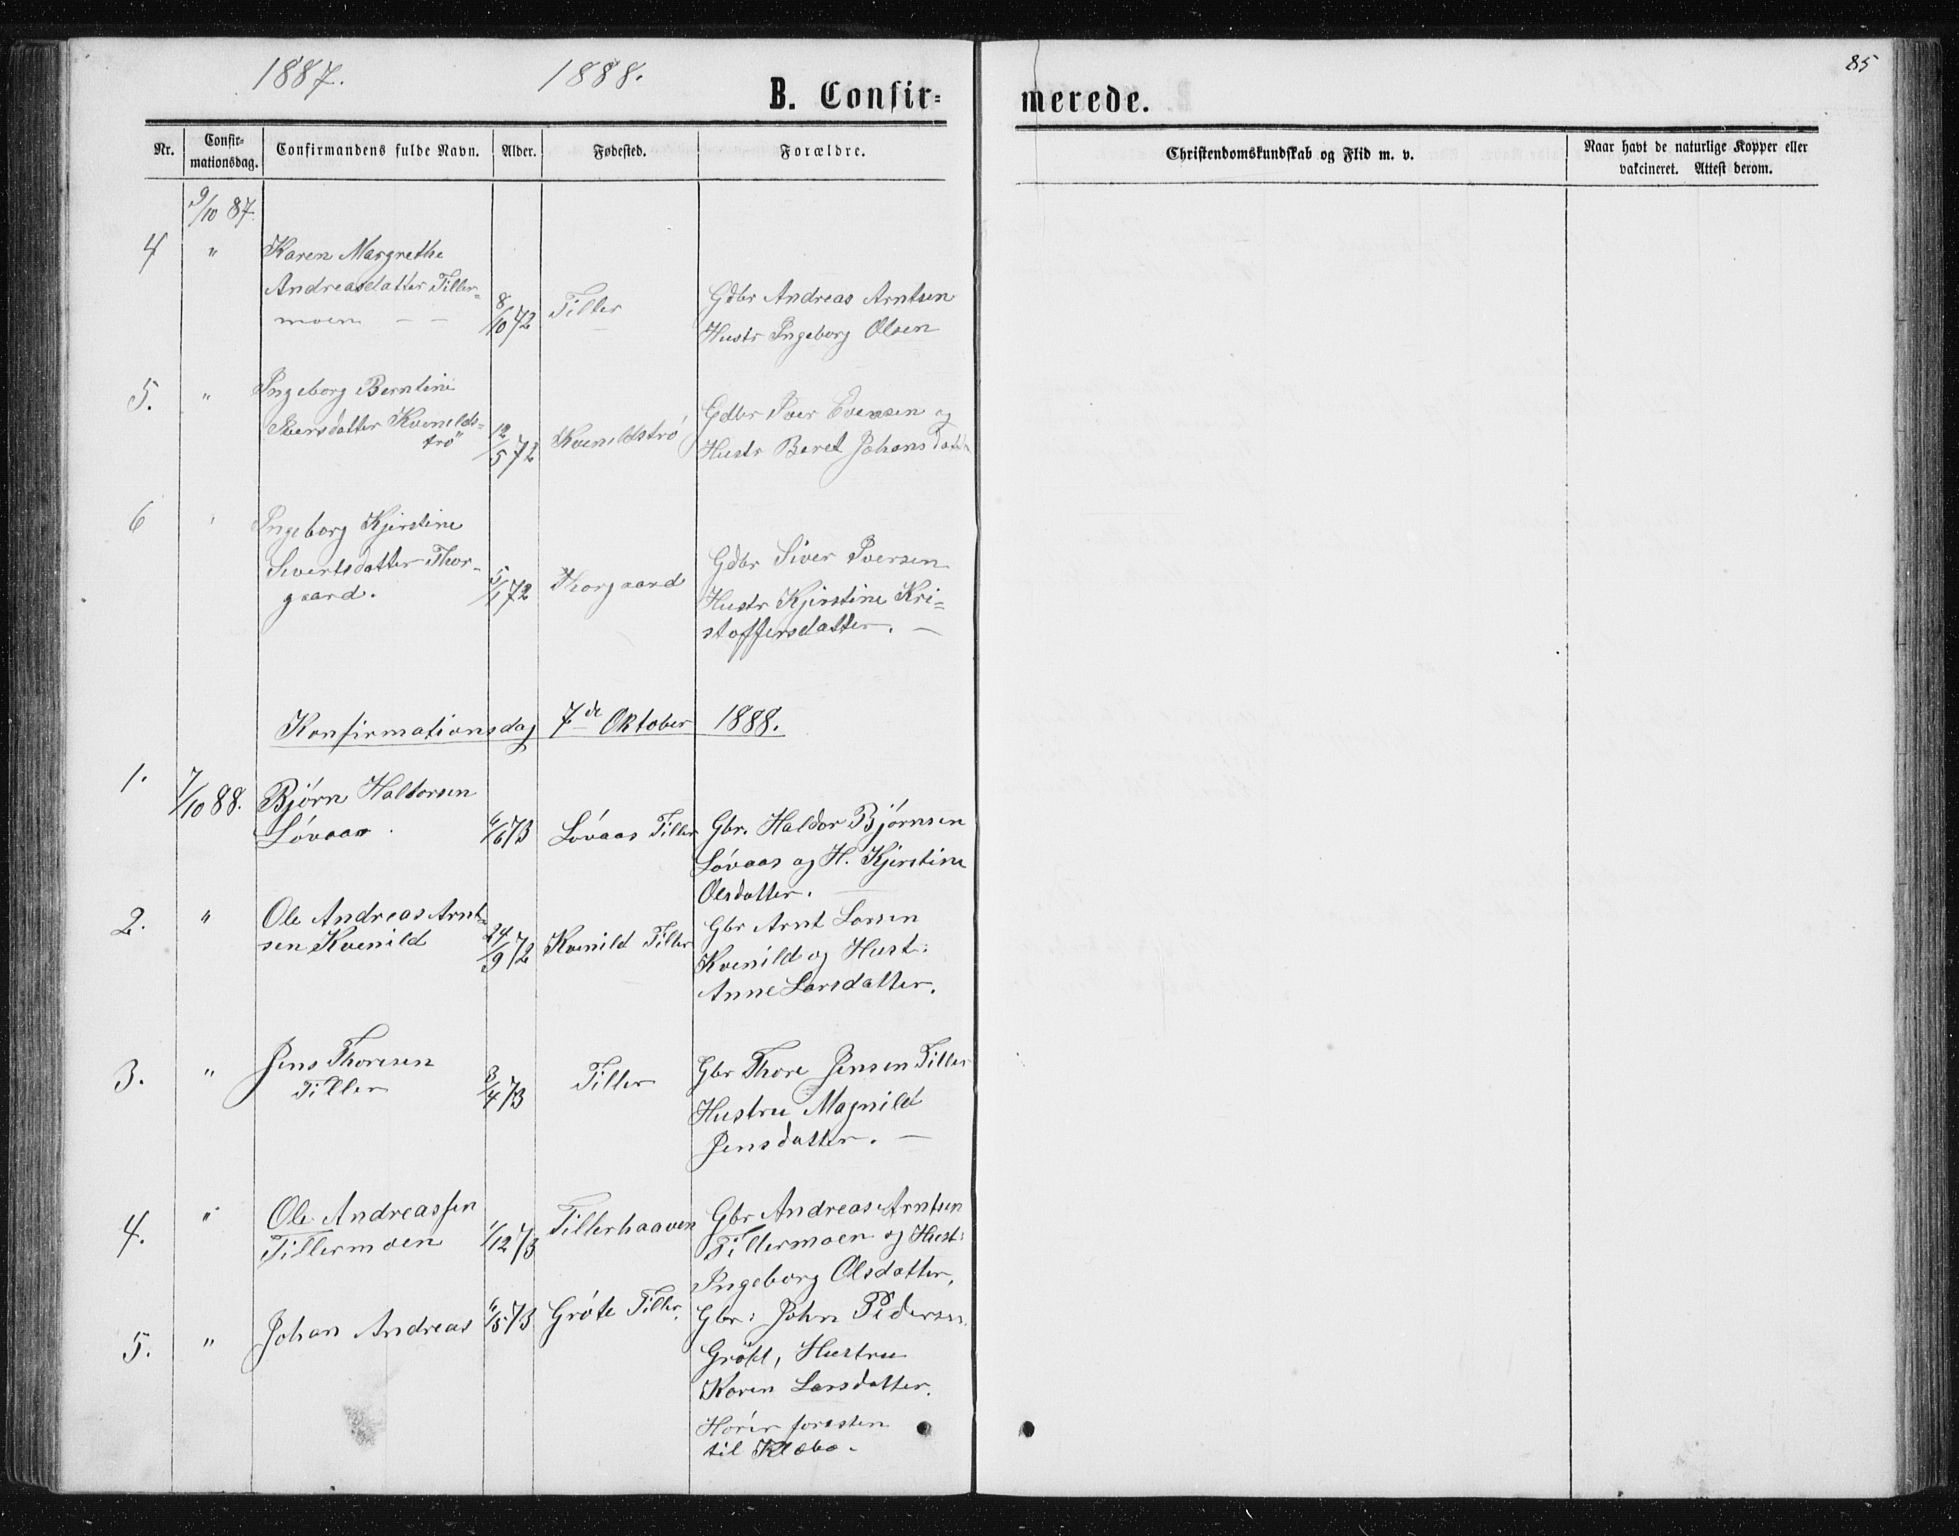 1887. 1888. 85
B. Confir= merede.
Nr. Confir-mationsdag. Confirmandens fulde Navn. Alder. Fødested. Forældre. Christendomskundskab og Flid m. v. Naar havt de naturlige Kopper eller vakcineret. Attest derom.
9/10 87.
4 " Karen Margrethe
Andreasdatter Tiller- 8/10 72 Tiller Gdbr Andreas Arntsen
moen — — Hustr Ingeborg Olsen
5. " Ingeborg Berntine
Iversdatter Kvenilds= 12/5 72 Kvenildströ Gdbr Iver Evensen og
trö Hustr Beret Johansdatter
6 " Ingeborg Kjerstine
Sivertsdatter Thor- 5/1 72 Thorgaard Gdbr Siver Iversen
gaard. Hustr Kjerstine Kri=
stoffersdatter. —
Konfirmationsdag 7de Oktober 1888.
1. 7/10 88. Björn Haldorsen
Lövaas. 6/6 73 Lövaas Tiller Gbr. Haldor Björnsen
Lövaas og H. Kjerstine
Olsdatter.
2. " Ole Andreas Arnt- 24/9 72 Kvenild Tiller Gbr Arnt Larsen
sen Kvenild Kvenild og Hust:
Anne Larsdatter.
3. " Jens Thoresen 3/4 73 Tiller Gbr Thore Jensen Tiller
Tiller Hustru Magnild
Jensdatter. —
4. " Ole Andreassen 1/12 73 Tillerhaaven Gbr Andreas Arntsen
Tillermoen Tillermoen og Hust:
Ingeborg Olsdatter,
5. " Johan Andreas 6/5 73 Gröte Tiller. Gbr: John Pedersen
Gröte, Hustru
Karen Larsdatter.
Hörer foresten
til Klæbo.